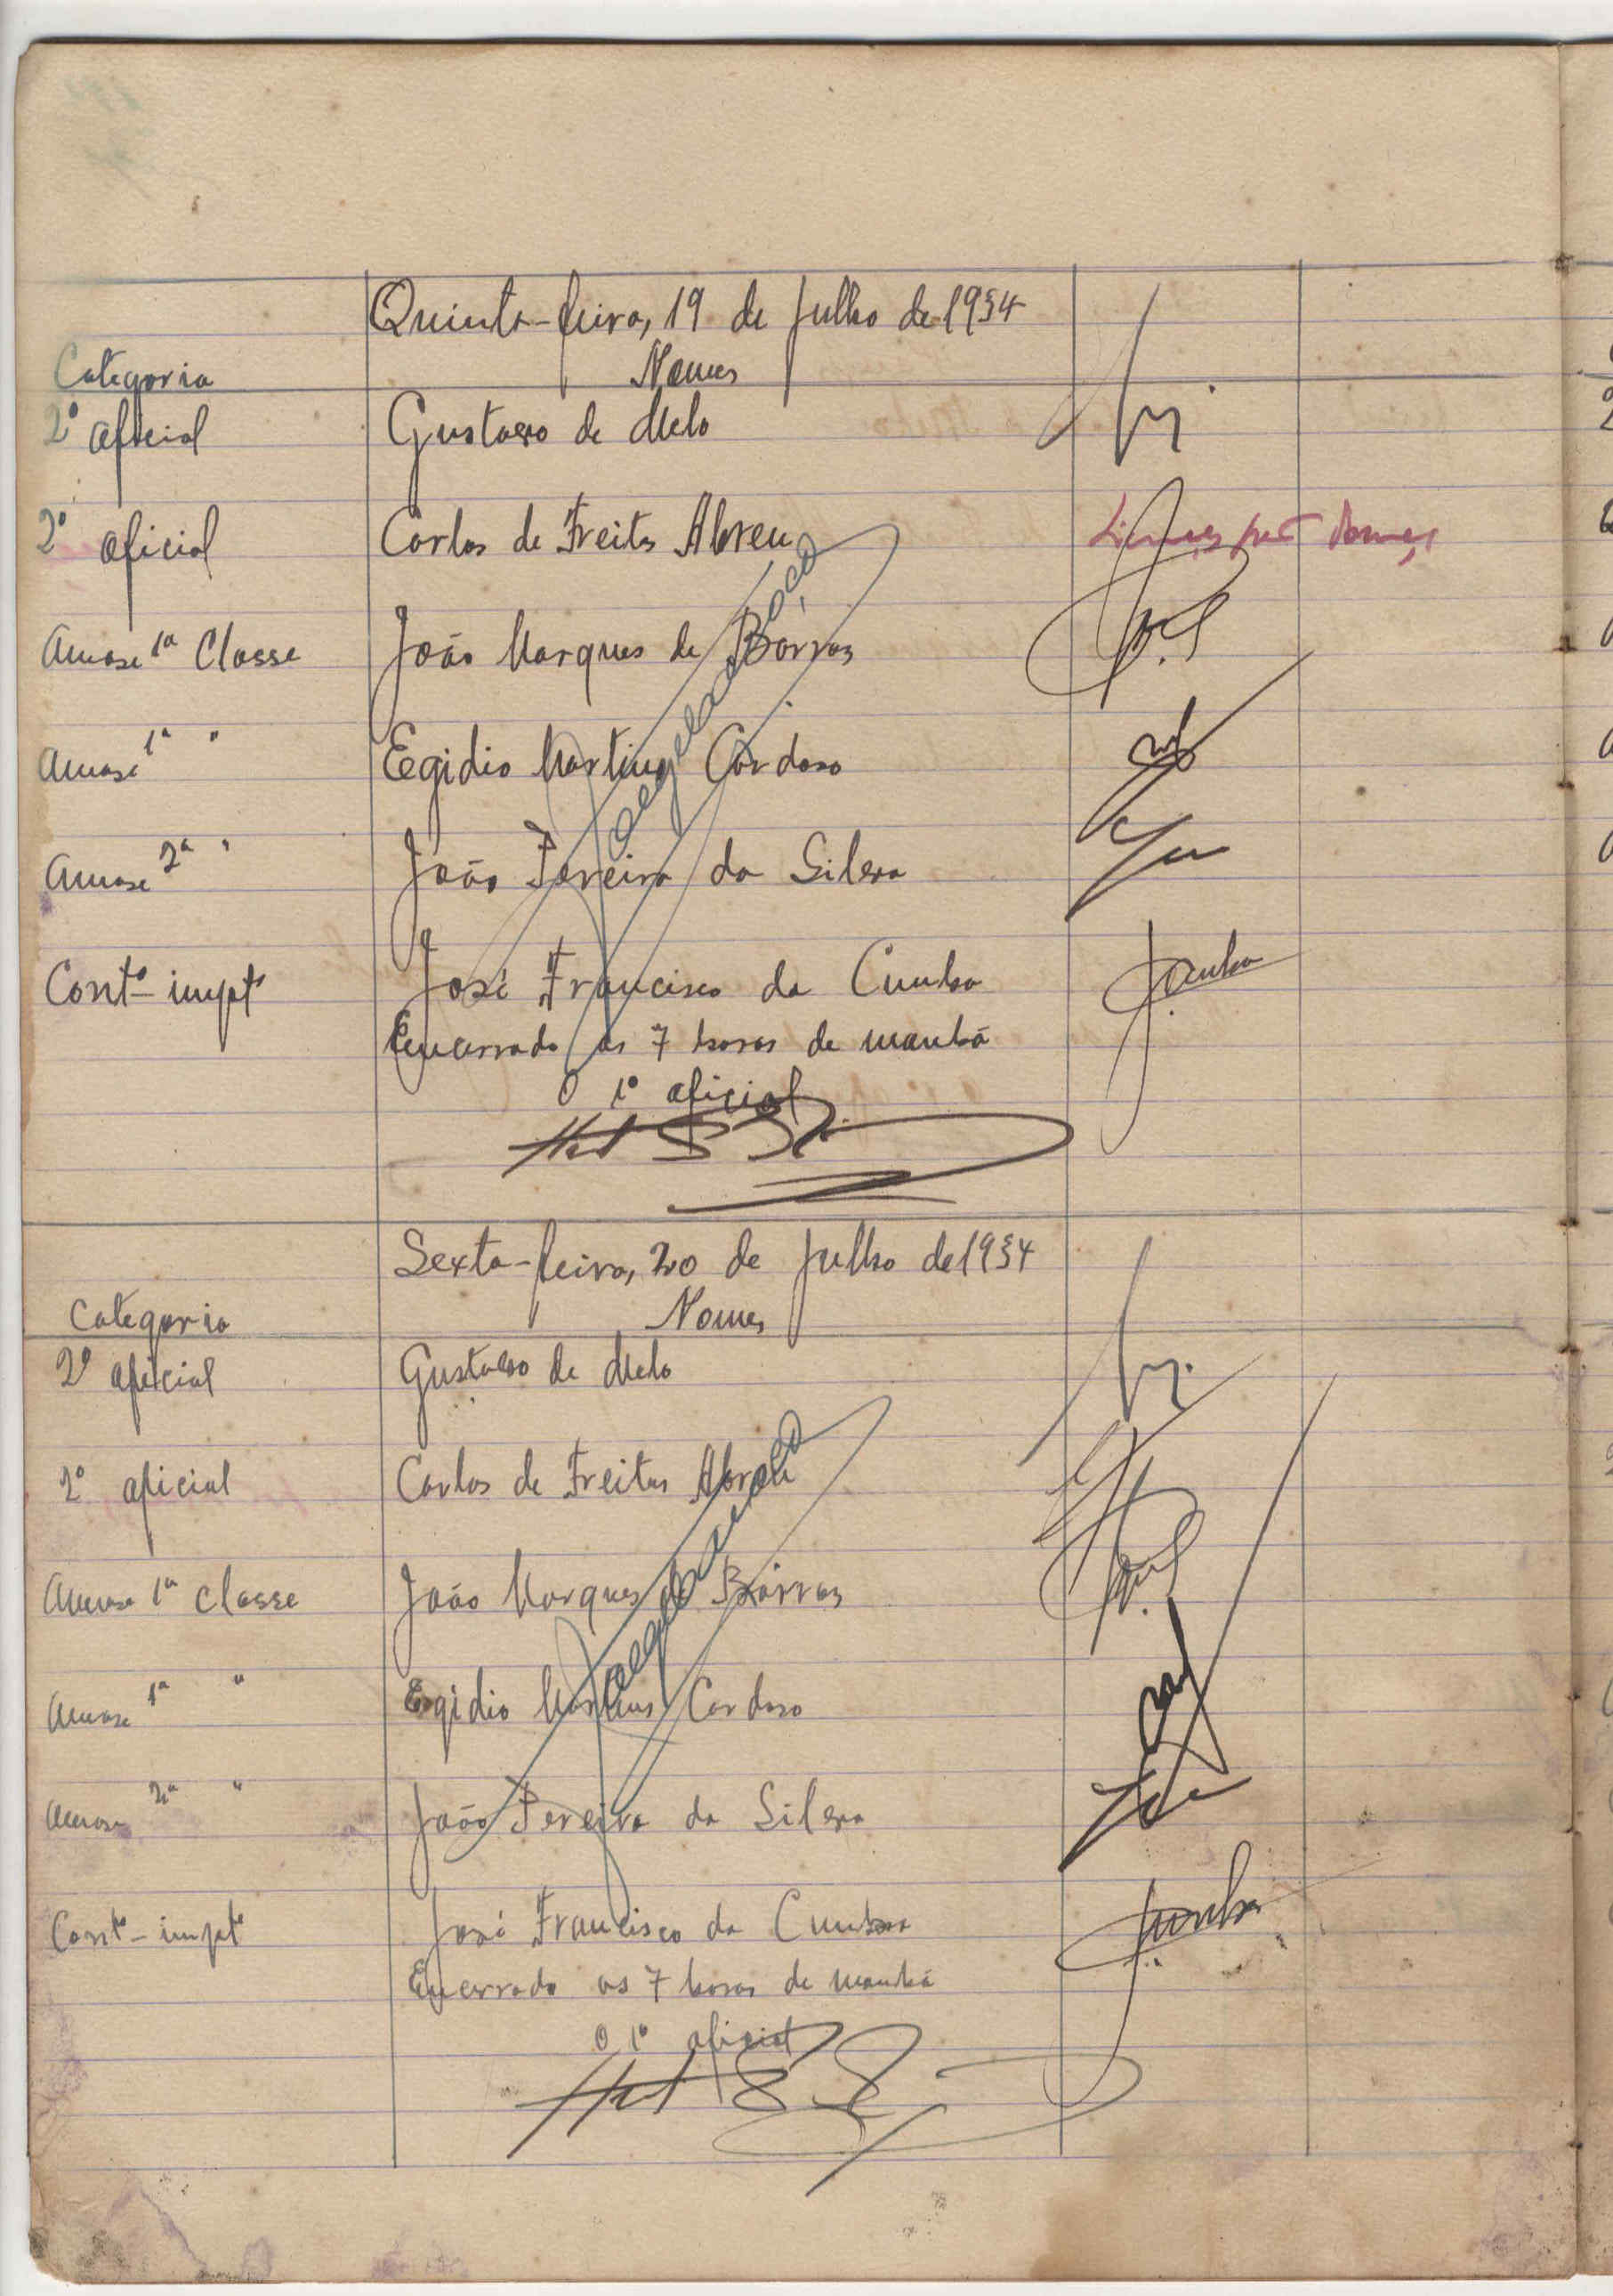 Quinta-feira, 19 de Julho de 1934
Categoria Nomes
2º oficial Gustavo de Melo
2º oficial Carlos de Freitas Abreu
1ª Classe João Marques de Barros
1ª " Egidio Martins Cardoso
2ª " João Pereira da Silva
Contº impº José Francisco da Cunha
Encerrado ás 7 horas da manhã
O 1º oficial
Sexta-feira, 20 de Julho de 1934
Categoria Nomes
2º oficial Gustavo de Melo
2º oficial Carlos de Freitas Abreu
1ª classe João Marques de Barros
1ª " Egidio Martins Cardoso
2ª " João Pereira da Silva
Contº - impº José Francisco da Cunha
Encerrado as 7 horas da manhã
O 1º oficial